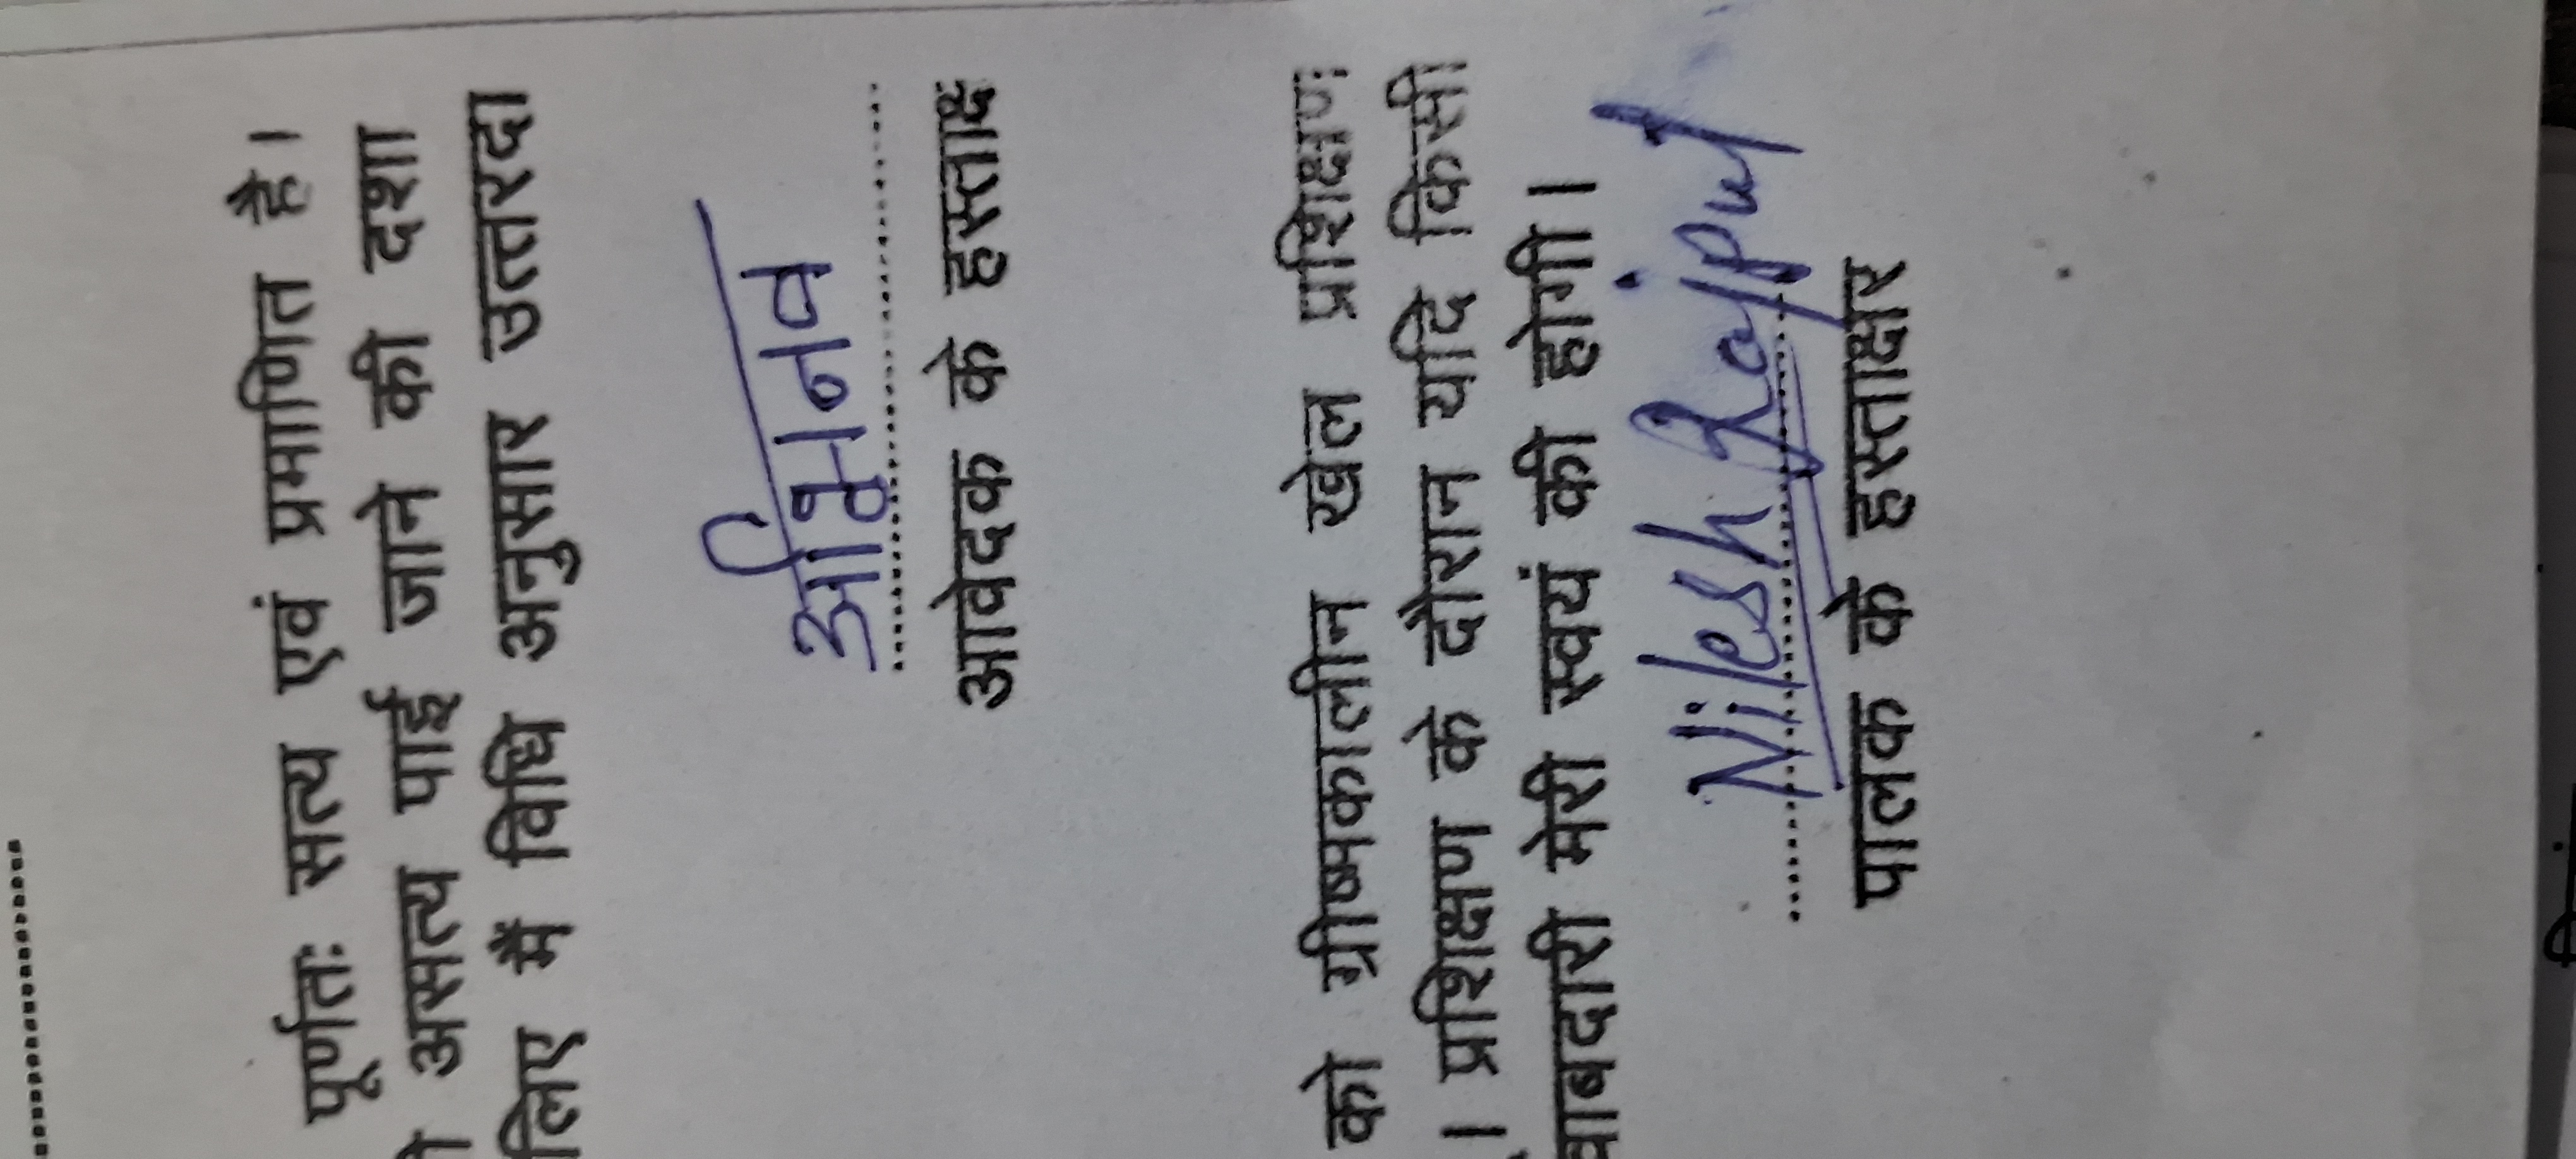 पूर्णतः सत्य एवं प्रमाणित है।
असत्य पाई जाने की दशा
लिए मैं विधि अनुसार उत्तरदा
अभिनव
आवेदक के हस्ताक्ष
को ग्रीष्मकालीन खेल प्रशिक्षण
। प्रशिक्षण के दौरान यदि किसी
वाबदारी मेरी स्वयं की होगी।
Nilesh Rajput
पालक के हस्ताक्षर